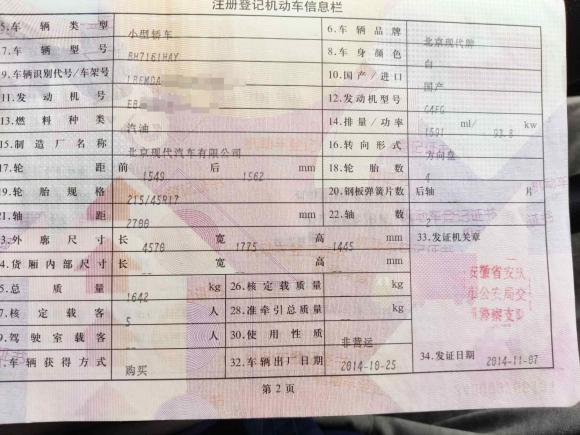 注册登记机动车信息栏
5.车辆类型 小型轿车 6.车辆品牌 北京现代牌
7.车辆型号 BH7161HAY 8.车身颜色 白
9.车辆识别代号/车架号 10.国产/进口 国产
11.发动机号 12.发动机型号 G4FG
13.燃料种类 汽油 14.排量/功率 1591 ml/ 93.8 kw
15.制造厂名称 北京现代汽车有限公司 16.转向形式 方向盘
17.轮距 前 1549 后 1562 mm 18.轮胎数 4
19.轮胎规格 215/45R17 20.钢板弹簧片数 后轴 片
21.轴距 2700 mm 22.轴数 2
3.外廓尺寸 长 4570 宽 1775 高 1445 mm 33.发证机关章
4.货厢内部尺寸 长 宽 高 mm
5.总质量 1642 kg 26.核定载质量 kg
7.核定载客 5 人 28.准牵引总质量 kg
9.驾驶室载客 人 30.使用性质 非营运
1.车辆获得方式 购买 32.车辆出厂日期 2014-10-25 34.发证日期 2014-11-07
安徽省安庆
市公安局交
通警察支队
第2页